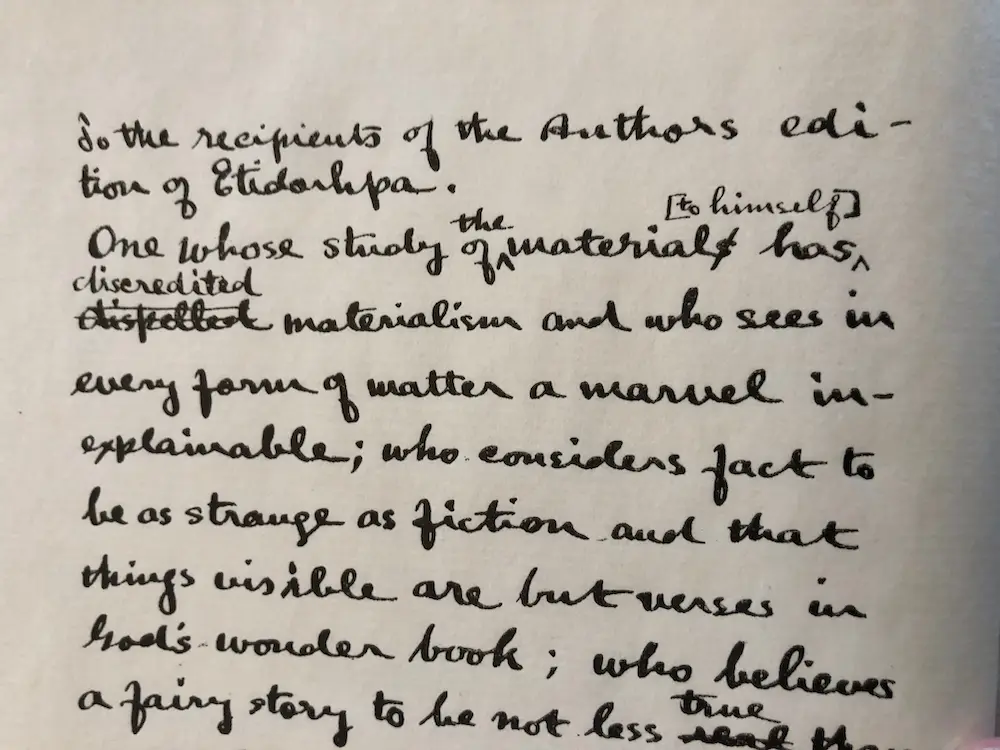 To the recipients of the Authors edi-
tion of Etidorhpa.
[to himself]
the
One whose study of materials has
discredited
dispelled materialism and who sees in
every form of matter a marvel in-
explainable; who considers fact to
be as strange as fiction and that
things visible are but verses in
God's wonder book; who believes
true
a fairy story to be not less real than